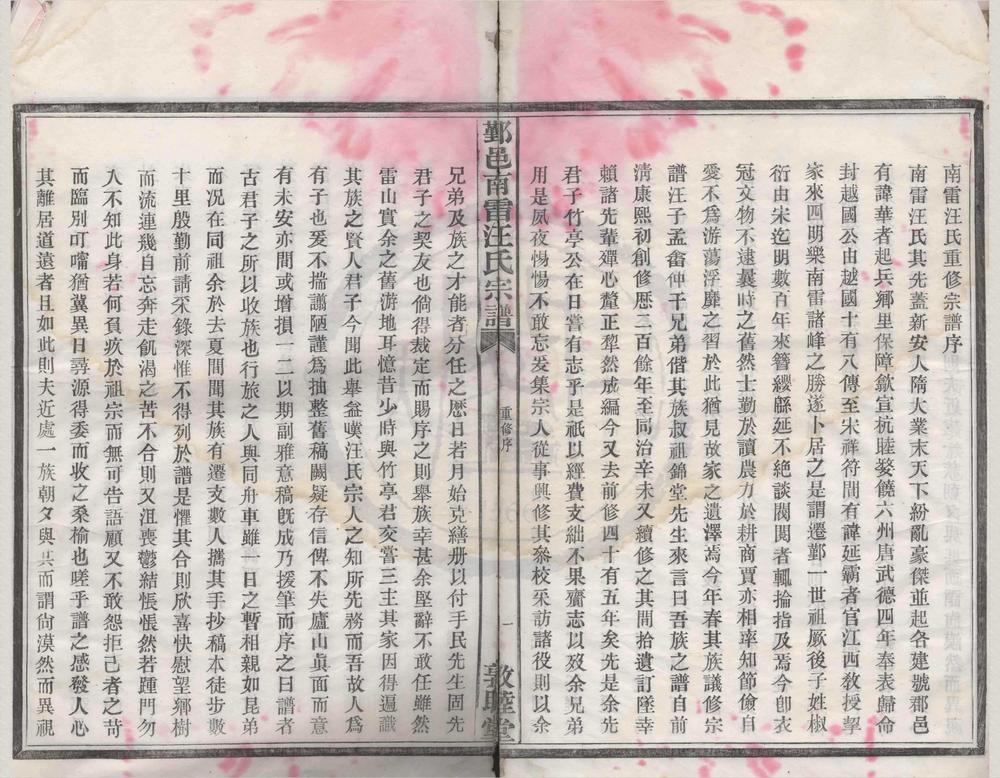 南雷汪氏重修宗譜序
南雷汪氏其先蓋新安人隋大業末天下紛亂豪傑並起各建號郡邑
有諱華者起兵鄉里保障歙宣杭睦婺饒六州唐武德四年奉表歸命
封越國公由越國十有八傳至宋祥符間有諱延霸者官江西教授挈
家來四明樂南雷諸峰之勝遂卜居之是謂遷鄞一世祖厥後子姓椒
衍由宋迄明數百年來簪纓緜延不絶談閥閱者輒掄指及焉今卽衣
冠文物不逮曩時之舊然士勤於讀農力於耕商賈亦相率知節儉自
愛不爲游蕩浮靡之習於此猶見故家之遺澤焉今年春其族議修宗
譜汪子孟畬仲干兄弟偕其族叔祖錦堂先生來言曰吾族之譜自前
淸康熙初創修厯二百餘年至同治辛未又續修之其間拾遺訂墜幸
賴諸先輩殫心釐正犂然成編今又去前修四十有五年矣先是余先
君子竹亭公在日嘗有志乎是祇以經費支絀不果齎志以歿余兄弟
用是夙夜惕惕不敢忘爰集宗人從事興修其叅校采訪諸役則以余
鄞邑南雷汪氏宗譜
重修序
一
敦睦堂
兄弟及族之才能者分任之厯日若月始克繕册以付手民先生固先
君子之契友也倘得裁定而賜序之則舉族幸甚余堅辭不敢任雖然
雷山實余之舊游地耳憶昔少時與竹亭君交嘗三主其家因得遍識
其族之賢人君子今聞此舉益嘆汪氏宗人之知所先務而吾故人爲
有子也爰不揣譾陋謹爲抽整舊稿闕疑存信俾不失廬山眞面而意
有未安亦間或增損一二以期副雅意稿旣成乃援筆而序之曰譜者
古君子之所以收族也行旅之人與同舟車雖一日之暫相親如昆弟
而况在同祖余於去夏間聞其族有遷支數人攜其手抄稿本徒步數
十里殷勤前請采錄深惟不得列於譜是懼其合則欣喜快慰望鄉樹
而流連幾自忘奔走飢渴之苦不合則又沮喪鬱結悵悵然若踵門勿
入不知此身若何負疚於祖宗而無可告語顧又不敢怨拒己者之苛
而臨別叮嚀猶冀異日尋源得委而收之桑榆也嗟乎譜之感發人心
其離居道遠者且如此則夫近處一族朝夕與共而謂尙漠然而異視